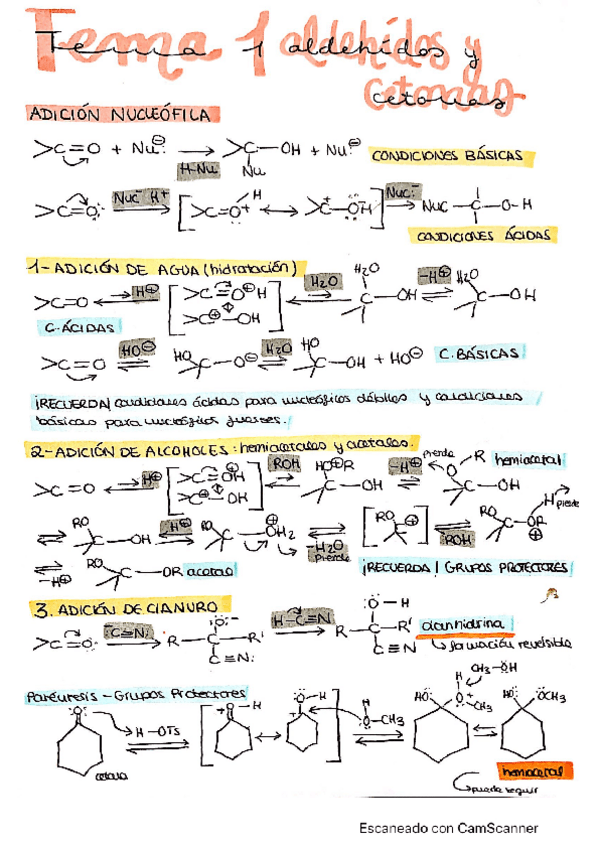 Tema 1 aldehidos y
cetonas
ADICIÓN NUCLEÓFILA
>C=O + Nu:⊖ → >C-OH + Nu:⊖ CONDICIONES BÁSICAS
H-Nu
Nu
Nuc⁻ H⁺ H Nuc:⁻
>C=O: [>C=O⁺ ↔ >C⁺-OH] Nuc-C-O-H
CONDICIONES ÁCIDAS
1-ADICIÓN DE AGUA (hidratación)
H⊕ H₂O H₂O -H⊕ H₂O
>C=O >C=O⊕H >C⊕-OH C-OH C-OH
C.ÁCIDAS
HO⊖ HO H₂O HO
>C=O C-O⊖ C-OH + HO⊖ C.BÁSICAS
¡RECUERDA! condiciones ácidas para nucleófilos débiles y condiciones
básicas para nucleófilos fuertes.
2-ADICIÓN DE ALCOHOLES: hemiacetales y acetales.
>C=O H⊕ >C=OH >C⊕-OH ROH HO⊕R C-OH -H⊕ Pierde O-R C-OH hemiacetal
RO C-OH H⊕ RO C-OH₂ -H₂O Pierde RO C⊕ ROH RO C-OR H pierde
-H⊕ RO C-OR acetal ¡RECUERDA! GRUPOS PROTECTORES
3. ADICIÓN DE CIANURO
>C=O: :⁻C≡N: R-C-R' :O:⁻ C≡N: H-C≡N R-C-R' :O-H C≡N cianhidrina
↳ formación reversible
Paréntesis - Grupos Protectores
:O: H-OTs O-H :O-H H O-CH₃ HO: H O⁺ CH₃ CH₃-OH HO: OCH₃
cetona
hemiacetal
puede seguir
Escaneado con CamScanner